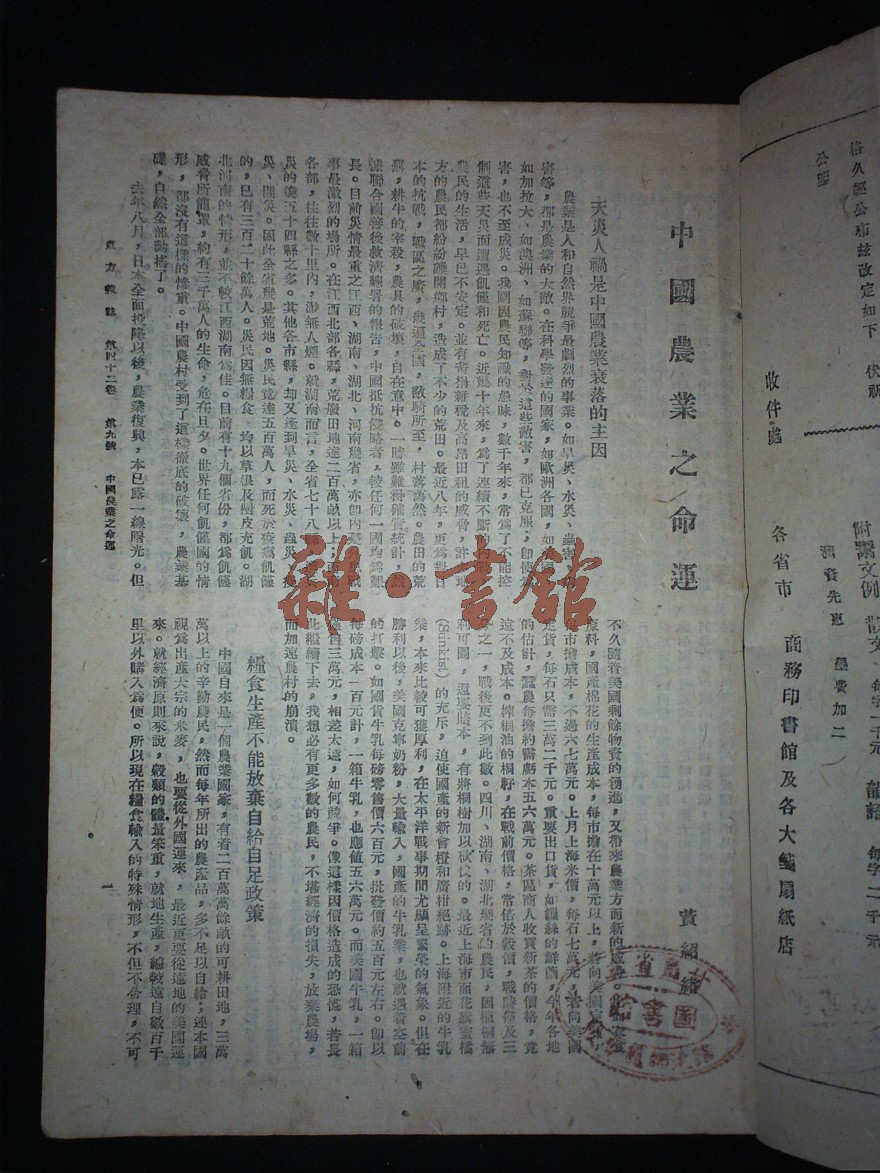 中國農業之命運
黃紹緒
天災人禍是中國農業衰落的主因
農業是人和自然界競爭最劇烈的事業。如旱災、水災、蟲害、
害等,都是農業的大敵。在科學發達的國家,如歐洲各國,如
如加拉大、如澳洲、如蘇聯等,對於這些敵害,都已克服,即使
害,也不至成災。我國因農民知識的愚昧,數千年來,常為了不能控
制這些天災而遭遇飢饉和死亡。近幾十年來,為了連續不斷的內
農民的生活,早已不安定。並有苛捐雜稅及高昂田租的威脅,許
方的農民都紛紛離開鄉村,造成了不少的荒田。最近八年,更為對日
本的抗戰,戰區之廣,幾遍全國,敵騎所至,村落蕩然。農田的荒
蕪,耕牛的宰殺,農具的破壞,自在意中。一時雖難得確實統計,
據聯合國善後救濟總署的報告,中國抵抗侵略者,較任何一國均為艱
長。目前災情最重之江西、湖南、湖北、河南幾省,亦即內
事最激烈的場所。在江西北部各縣,荒廢田地達二百萬畝以上;
各部,往往數十里內,渺無人煙。就湖南而言,全省七十八縣
災的達五十四縣之多。其他各市縣,却又遭到旱災、水災、蟲災、
災、匪災。因此全省幾是荒地。災民竟達五百萬人,而死於疫癘飢饉
的,已有三百二十餘萬人。災民因無糧食,均以草根及樹皮充飢。湖
北河南的情形,並不較江西湖南為佳。目前有十九個省份,都為飢饉
威脅所籠罩,約有三千萬人的生命,危在旦夕。世界任何飢饉國的情
形,都沒有這樣的慘重。中國農村受到了這樣徹底的破壞,農業基
礎,自然全部動搖了。
去年八月,日本全面投降以後,農業復興,本已露一線曙光。但
不久隨着美國剩餘物資的湧進,又帶來農業方面新的
原料,國產棉花的生產成本,每市擔在十萬元以上,若向美國
每市擔成本,不過六七萬元。上月上海米價,每石七萬元,若向美國
定貨,每石只需三萬二千元。重要出口貨,如繅絲的鮮繭,今年各地
的估計,蠶農每擔約需虧本五六萬元。茶區商人收買新茶的價格,竟
遠不及成本。榨桐油的桐籽,在戰前價格,常倍於穀價,戰時僅及三
分之一,戰後更不到此數。四川、湖南、湖北幾省的農民,因種桐無
利可圖,還要賠本,有將桐樹加以砍伐的。最近上海市面花旗蜜橘
(Sunkist)的充斥,迫使國產的新會橙和廣柑絕跡。上海附近的牛乳
業,本來比較可獲厚利,在太平洋戰事期間尤顯呈繁榮的氣象。但在
勝利以後,美國克寧奶粉,大量輸入,國產的牛乳業,也就遇着空前
的打擊。如國貨牛乳每磅零售價六百元,批發價約五百元左右。即以
每磅成本一百元計,一箱牛乳,也應值五六萬元。而美國牛乳,一箱
僅售三萬元,相差太遠,如何競爭。像這樣因價格造成的恐慌,若長
此繼續下去,我想必有更多數的農民,不堪經濟的損失,放棄農場,
而加速農村的崩潰。
糧食生產不能放棄自給自足政策
中國自來是一個農業國家,有着二百萬萬餘畝的可耕田地,三萬
萬以上的辛勤農民,然而每年所出的農產品,多不足以自給;連本國
視為出產大宗的米麥,也要從外國運來,最近更要從遠地的美國運
來。就經濟原則來說,穀類的體量笨重,就地生產,總較遠自數百千
里以外購入為便。所以現在糧食輸入的特殊情形,不但不合理,不可
東方雜誌 第四十二卷 第九號 中國農業之命運
一
雜·書館
圖書館
格久經公布茲改定如下
收件處
各省市 商務印書館及各大箋扇紙店
潤資先惠 墨費加二